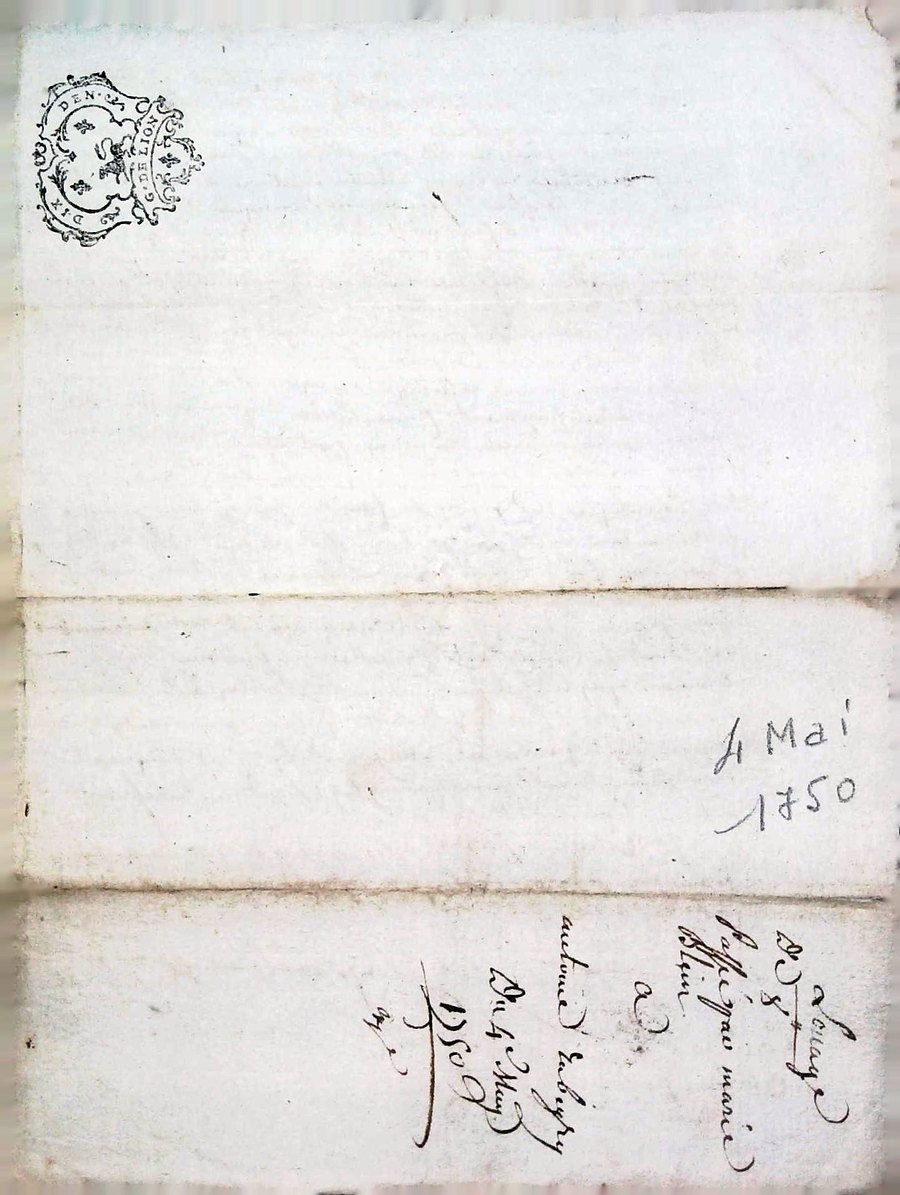 DIX DEN.
G. DE LION
4 Mai
1750
Louage
De 8
Passé par marie
Blein
a
antoine
Du 4e May
1750